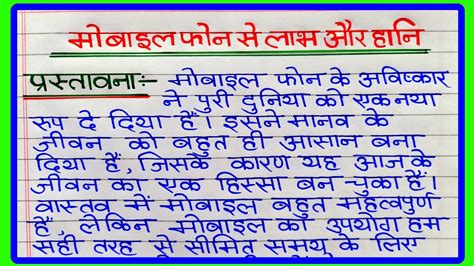 मोबाइल फोन से लाभ और हानि
प्रस्तावना:- मोबाइल फोन के अविष्कार
ने पुरी दुनिया को एक नया
रूप दे दिया हैं। इसने मानव के
जीवन को बहुत ही आसान बना
दिया हैं, जिसके कारण यह आज के
जीवन का एक हिस्सा बन चुका हैं।
वास्तव में मोबाइल बहुत महत्वपुर्ण
हैं, लेकिन मोबाइल का उपयोग हम
सही तरह से सीमित समय के लिए